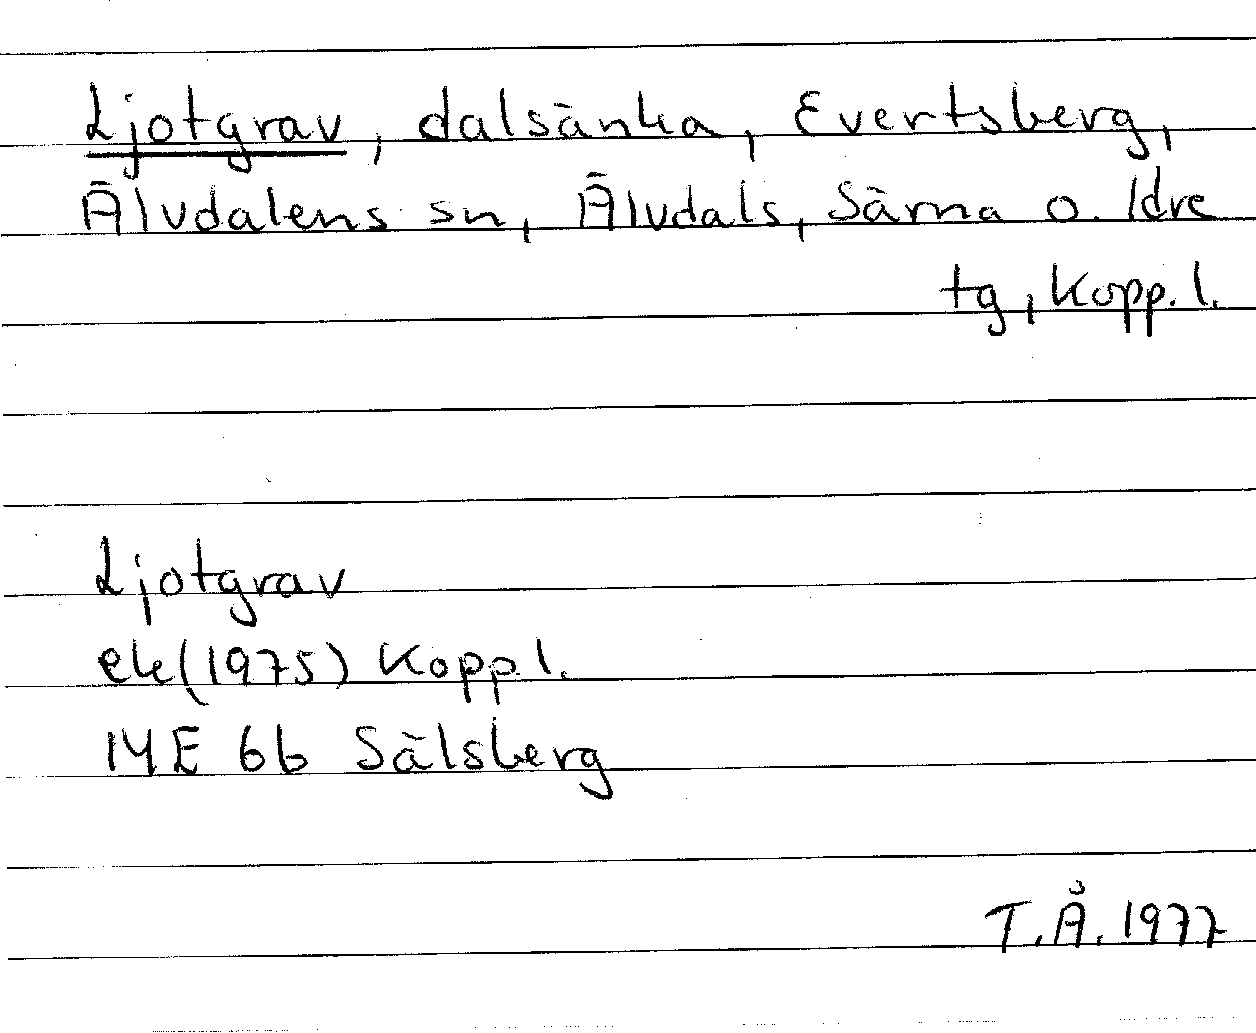 Ljotgrav, dalsänka, Evertsberg,
Älvdalens sn, Älvdals, Särna o. Idre
tg, Kopp. l.
Ljotgrav
ek (1975) Kopp l.
14E 6b Sälsberg
T.Å. 1977